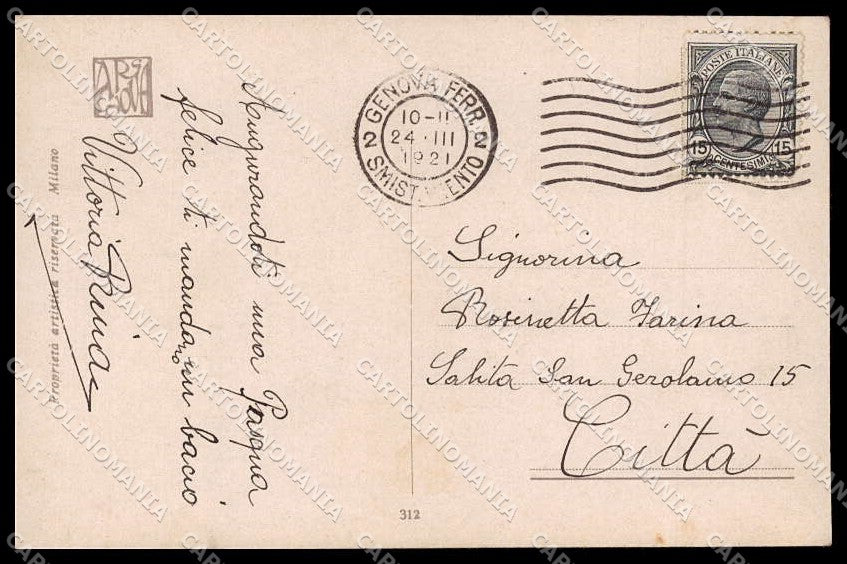 Augurandoti una Pasqua
felice ti mandano un bacio
Vittoria Pinia
Proprietà artistica riservata Milano
312
GENOVA FERR.
2 2
10-11
24·III
1921
SMISTAMENTO
POSTE ITALIANE
15 15
CENTESIMI
Signorina
Rosinetta Farina
Salita San Gerolamo 15
Città
CARTOLINOMANIA